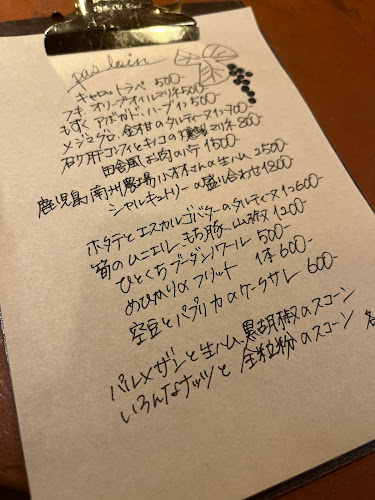 pas loin
キャロットラペ 500-
フキ オリーブオイルマリネ500-
もずく アボカド、ハーブ 1つ500-
メジマグロ、金柑のタルティーヌ1つ700-
砂肝コンフィとキノコの マリネ 800-
田舎風お肉のパテ 1500-
鹿児島 南州農場 小オオさんの生ハム 2500
シャルキュトリーの盛り合わせ1800-
ホタテとエスカルゴバターのタルティーヌ 1つ600-
筍のムニエル、もち豚、山椒 1200-
ひとくちブーダンノワール 500-
めひかりのフリット 1本600-
空豆とパプリカのケークサレ 600-
パルメザンと生ハム 黒胡椒のスコーン
いろんなナッツと 全粒粉のスコーン 各